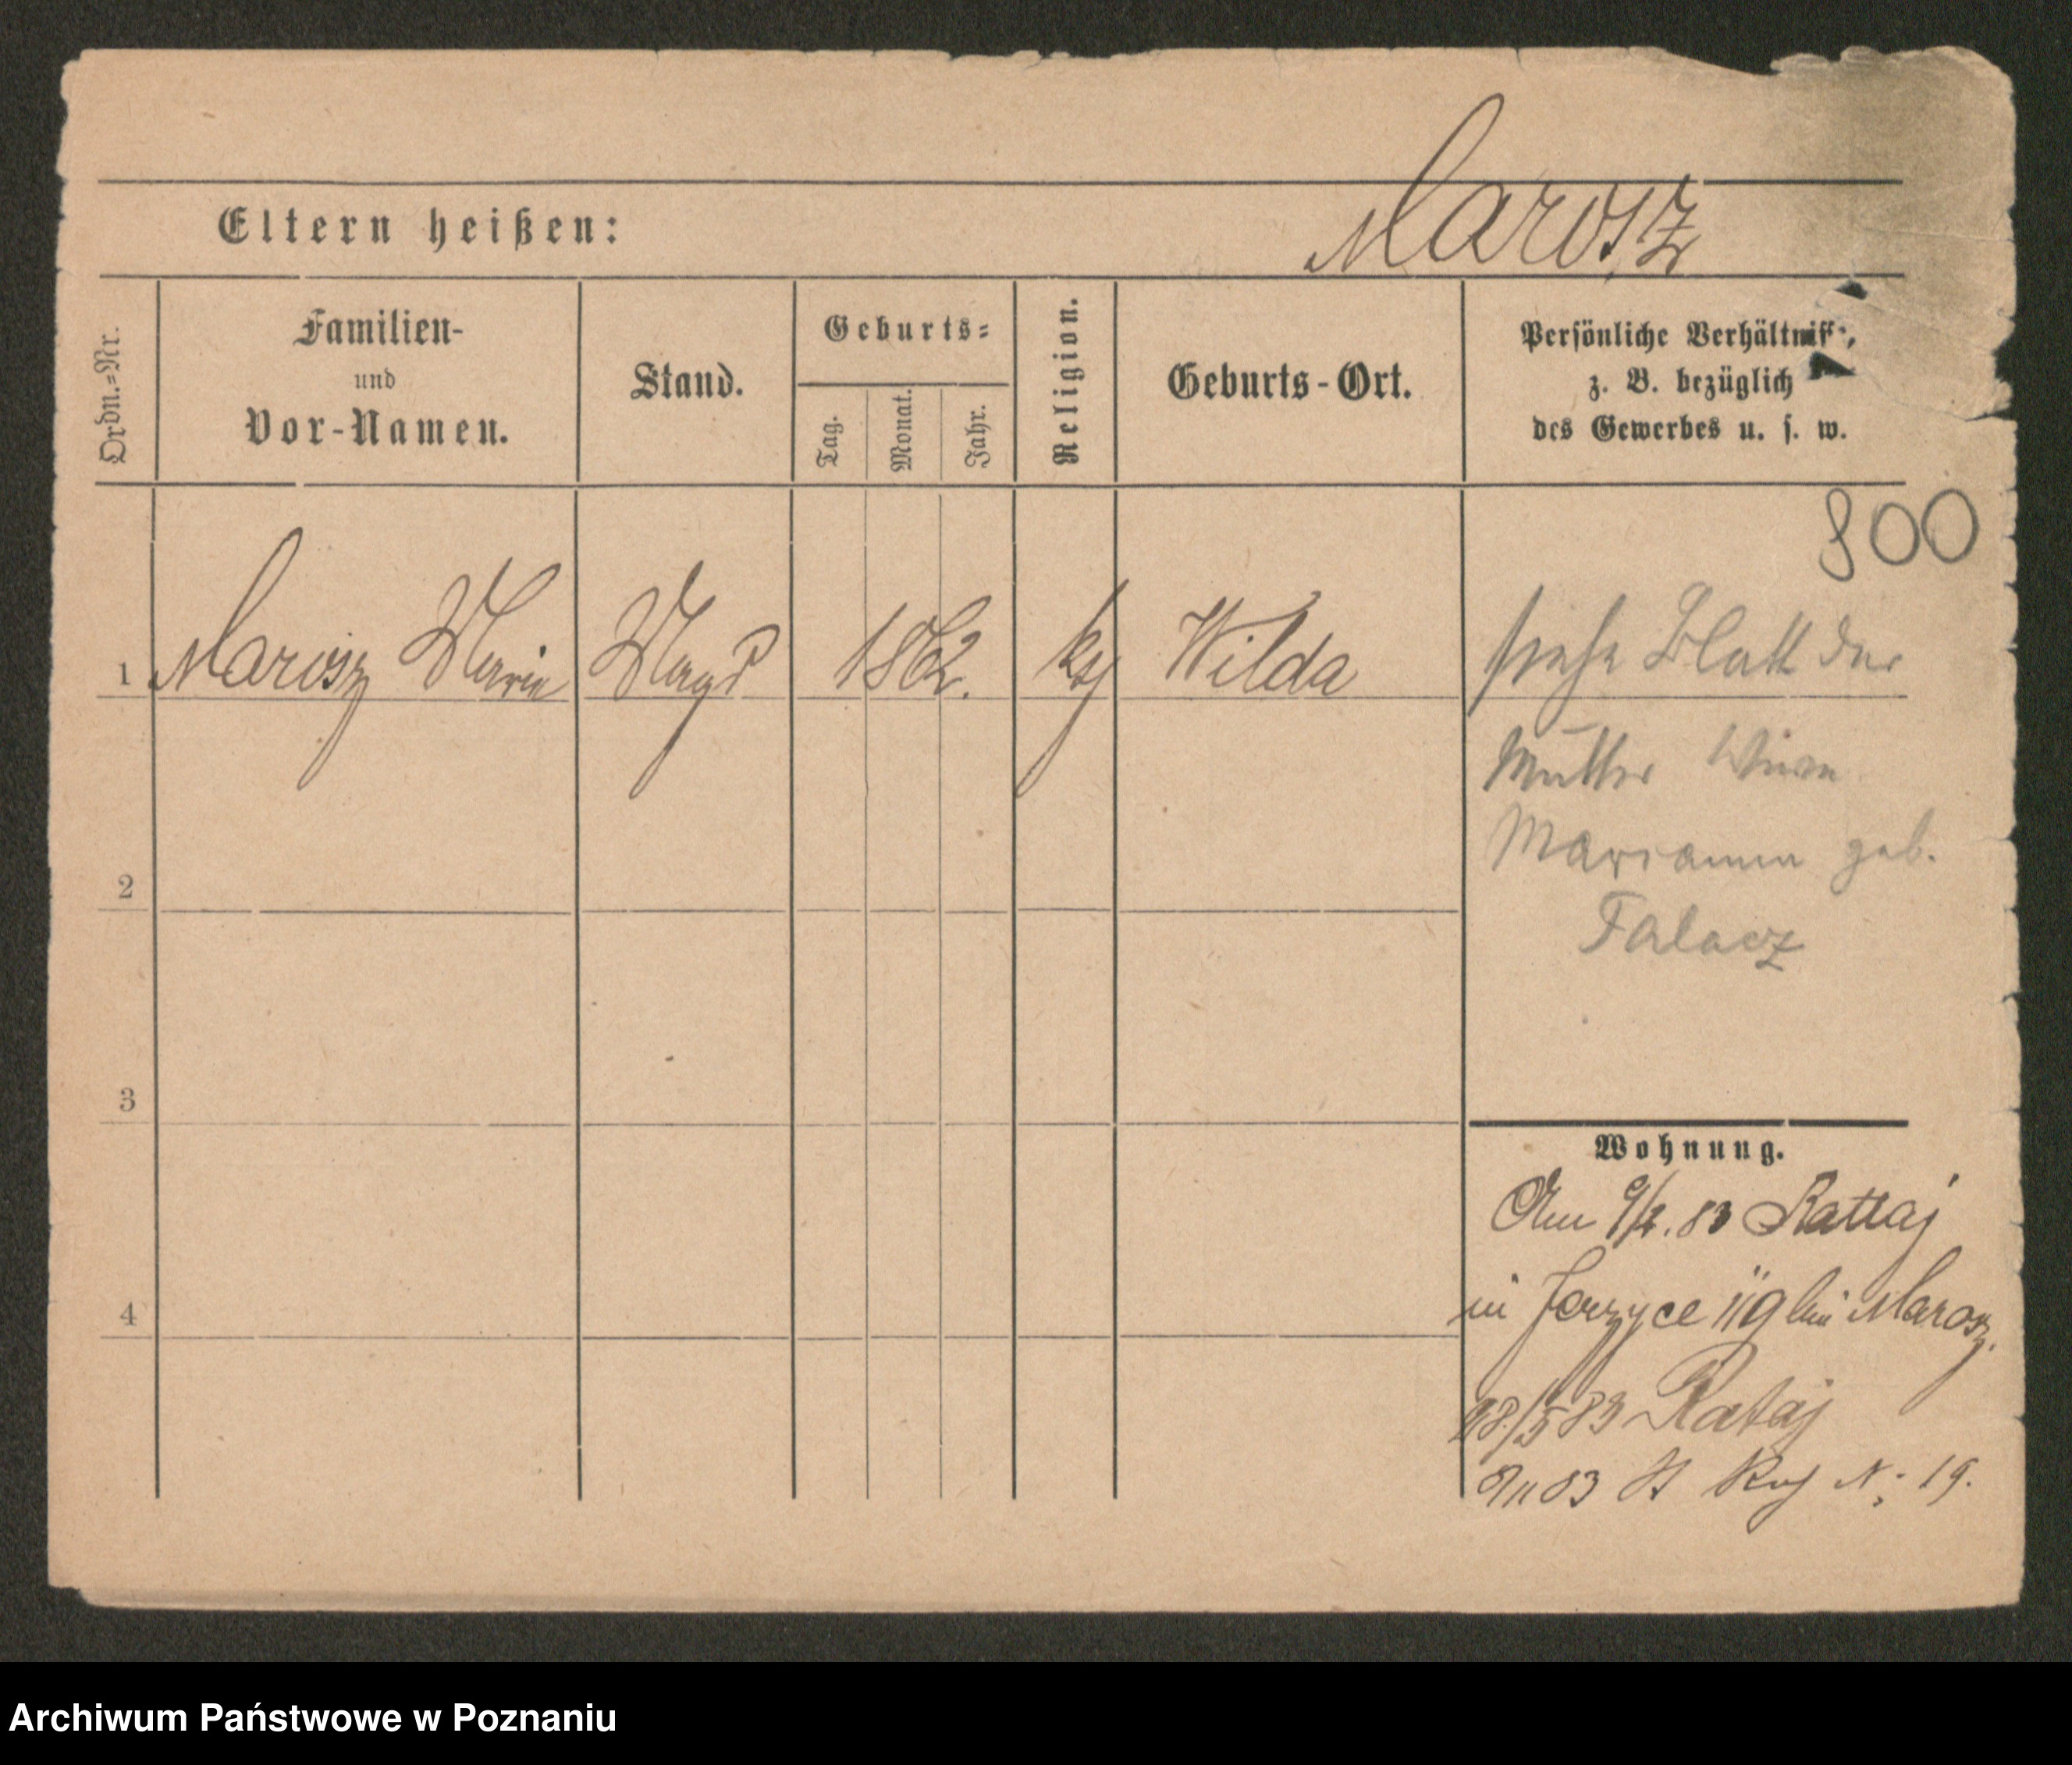 Marosz
Eltern heißen:
Ordn.=Nr.
Familien-
und
Vor-Namen.
Stand.
Geburts=
Tag.
Monat.
Jahr.
Religion.
Geburts-Ort.
Persönliche Verhältniss,
z. B. bezüglich
des Gewerbes u. s. w.
800
1 Marosz Marie Magd 1862. kg Wilda siehe Blatt der
Mutter Wwe
Marianna geb.
Falacz
2
3
4
Wohnung.
Am 9/2. 83 Rattaj
in Jerzyce 119 bei Marosz.
28/5 83 Rataj
9/11 83 St Roch N: 19.
Archiwum Państwowe w Poznaniu